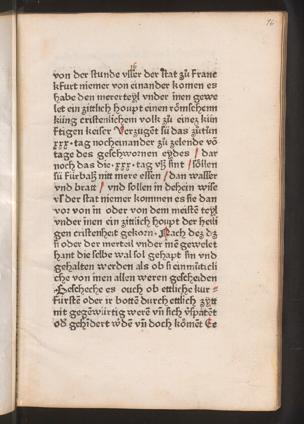 16
von der stunde vsser der stat zů Franc
kfurt niemer von einander komen es
habe den mererteyl vnder inen gewe
let ein zittlich houpt einen römschenn
küng cristenlichem volk zů einez kün
ftigen keiser Verzugēt sü das zůtůn
xxx · tag nocheinander zů zelende vō
tage des geschwornen eydes / dar
noch das die · xxx · tag vß sint / söllen
sü fürbaß nit mere essen / dan wasser
vnd bratt / vnd sollen in dehein wise
vß der stat niemer kommen es sie dan
vor von in oder von dem meistē teyl
vnder inen ein zittlich houpt der heili
gen cristenheit gekorn · Nach dez dz
sü oder der merteil vnder inē gewelet
hant die selbe wal sol gehapt sin vnd
gehalten werden als ob si einmůticli
che von inen allen weren gescheiden
Geschehe es ouch ob ettliche kur =
fürstē oder ir bottē durch ettlich zytt
nit gegēwürtig werē vn̄ sich vspätēt
od' gehīdert wðē vn̄ doch kömēt Ee